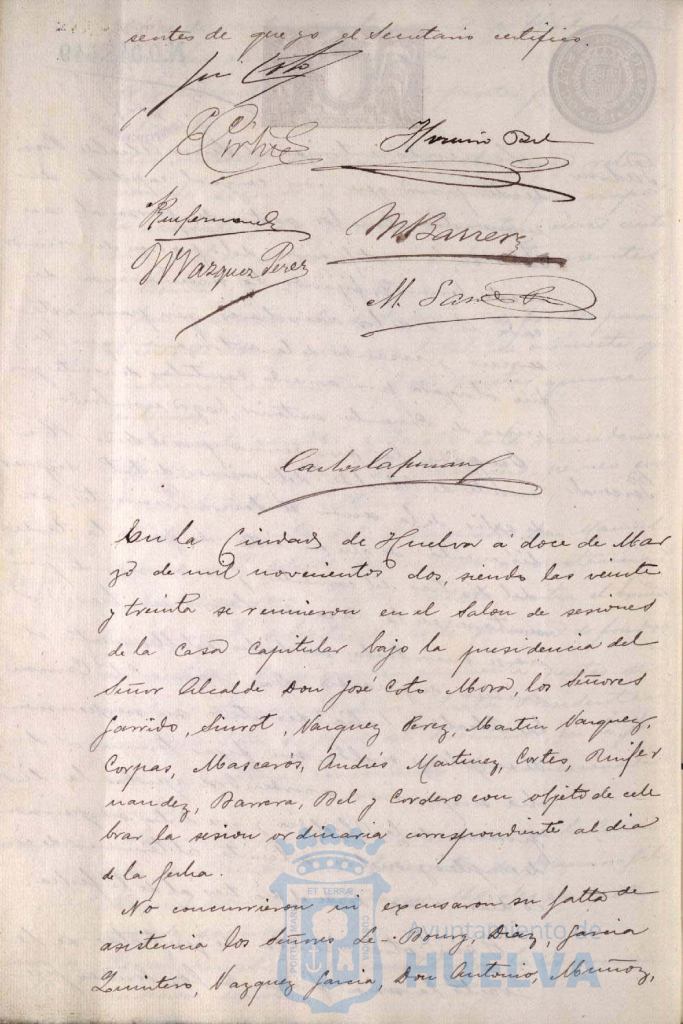 sentes de que yo el Secretario certifico.
José Coto
Cortés
Horacio Bel
Ruifernandez
M Barrera
Vazquez Perez
M.
En la Ciudad de Huelva á doce de Mar
zo de mil novecientos dos, siendo las veinte
y treinta se reunieron en el Salon de sesiones
de la casa capitular bajo la presidencia del
Señor Alcalde Don José Coto Mora, los Señores
Garrido, Siurot, Vazquez Perez, Martin Vazquez,
Corpas, Mascarós, Andrés Martinez, Cortes, Ruifer
nandez, Barrera, Bel y Cordero con objeto de cele
brar la sesion ordinaria correspondiente al dia
de la fecha.
No concurrieron ni excusaron su falta de
asistencia los Señores Le-Bourg, Diaz, Garcia
Quintero, Vazquez Garcia, Don Antonio, Muñoz,
PORTUS MARIS ET TERRÆ CUSTODIA
Ayuntamiento de
HUELVA